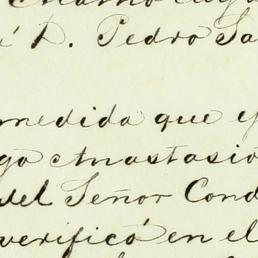 á D. Pedro Sa
medida que e
go Anastasio
del Señor Cond
verificó en el